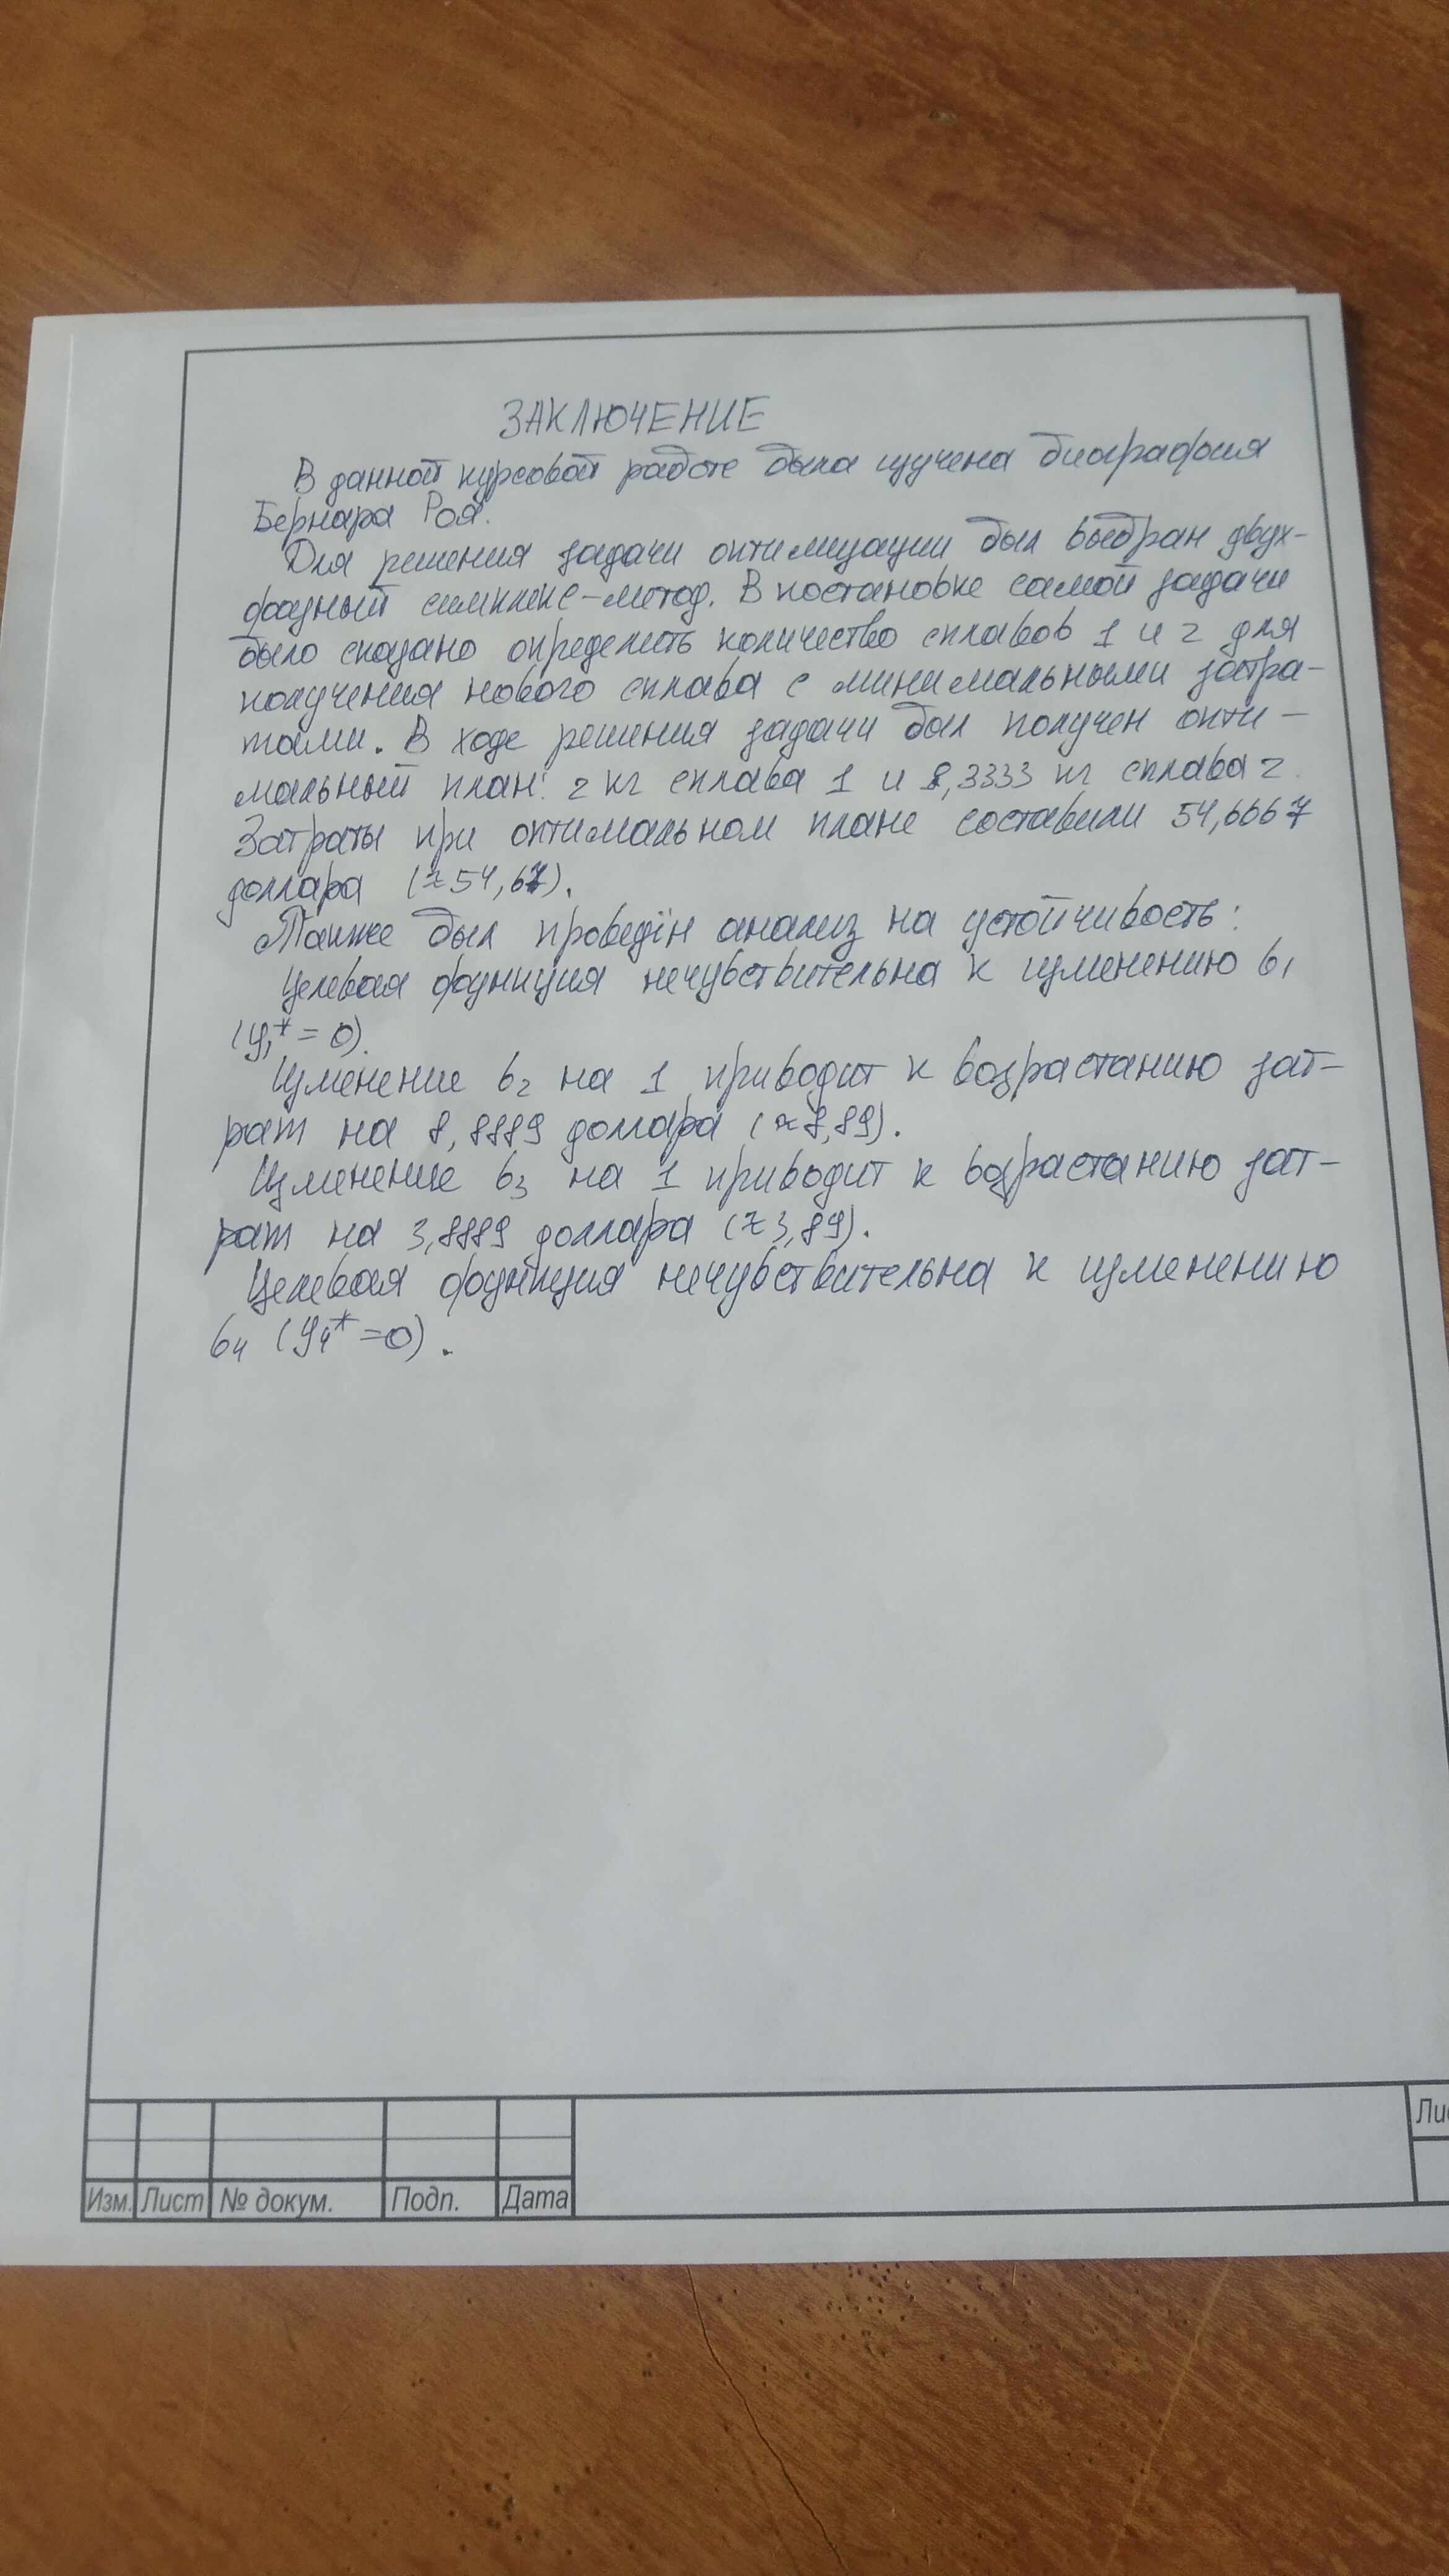 ЗАКЛЮЧЕНИЕ
В данной курсовой работе была изучена биография
Бернара Роя.
Для решения задачи оптимизации был выбран двух-
фазный симплекс-метод. В постановке самой задачи
было сказано определить количество сплавов 1 и 2 для
получения нового сплава с минимальными затра-
тами. В ходе решения задачи был получен опти-
мальный план: 2 кг сплава 1 и 8,3333 кг сплава 2.
Затраты при оптимальном плане составили 54,6667
доллара (≈54,67).
Также был проведён анализ на устойчивость:
Целевая функция нечувствительна к изменению b1
(y1* = 0).
Изменение b2 на 1 приводит к возрастанию зат-
рат на 8,8889 доллара (≈8,89).
Изменение b3 на 1 приводит к возрастанию зат-
рат на 3,8889 доллара (≈3,89).
Целевая функция нечувствительна к изменению
b4 (y4* = 0).
Изм. Лист № докум. Подп. Дата